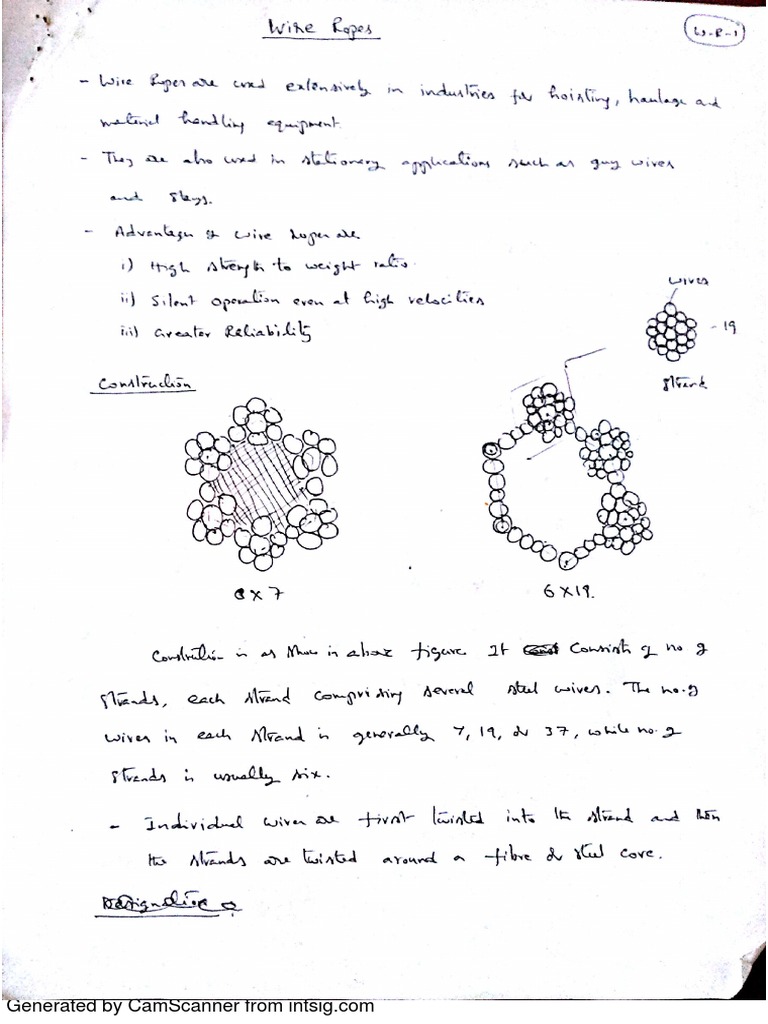 Wire Ropes
W-R-1
- Wire Ropes are used extensively in industries for hoisting, haulage and
material handling equipment.
- They are also used in stationery applications such as guy wires
and stays.
- Advantages of wire ropes are
i) High strength to weight ratio.
ii) Silent operation even at high velocities
iii) Greater Reliability
wires
- 19
Strand
Construction
6 x 7
6 x 19.
Constrution is as show in above figure. It consists of no of
strands, each strand comprising several steel wires. The no. of
wires in each strand is generally 7, 19, or 37, while no. of
strands is usually six.
- Individual wires are first twisted into the strand and then
the strands are twisted around a fibre or steel core.
Designation
Generated by CamScanner from intsig.com